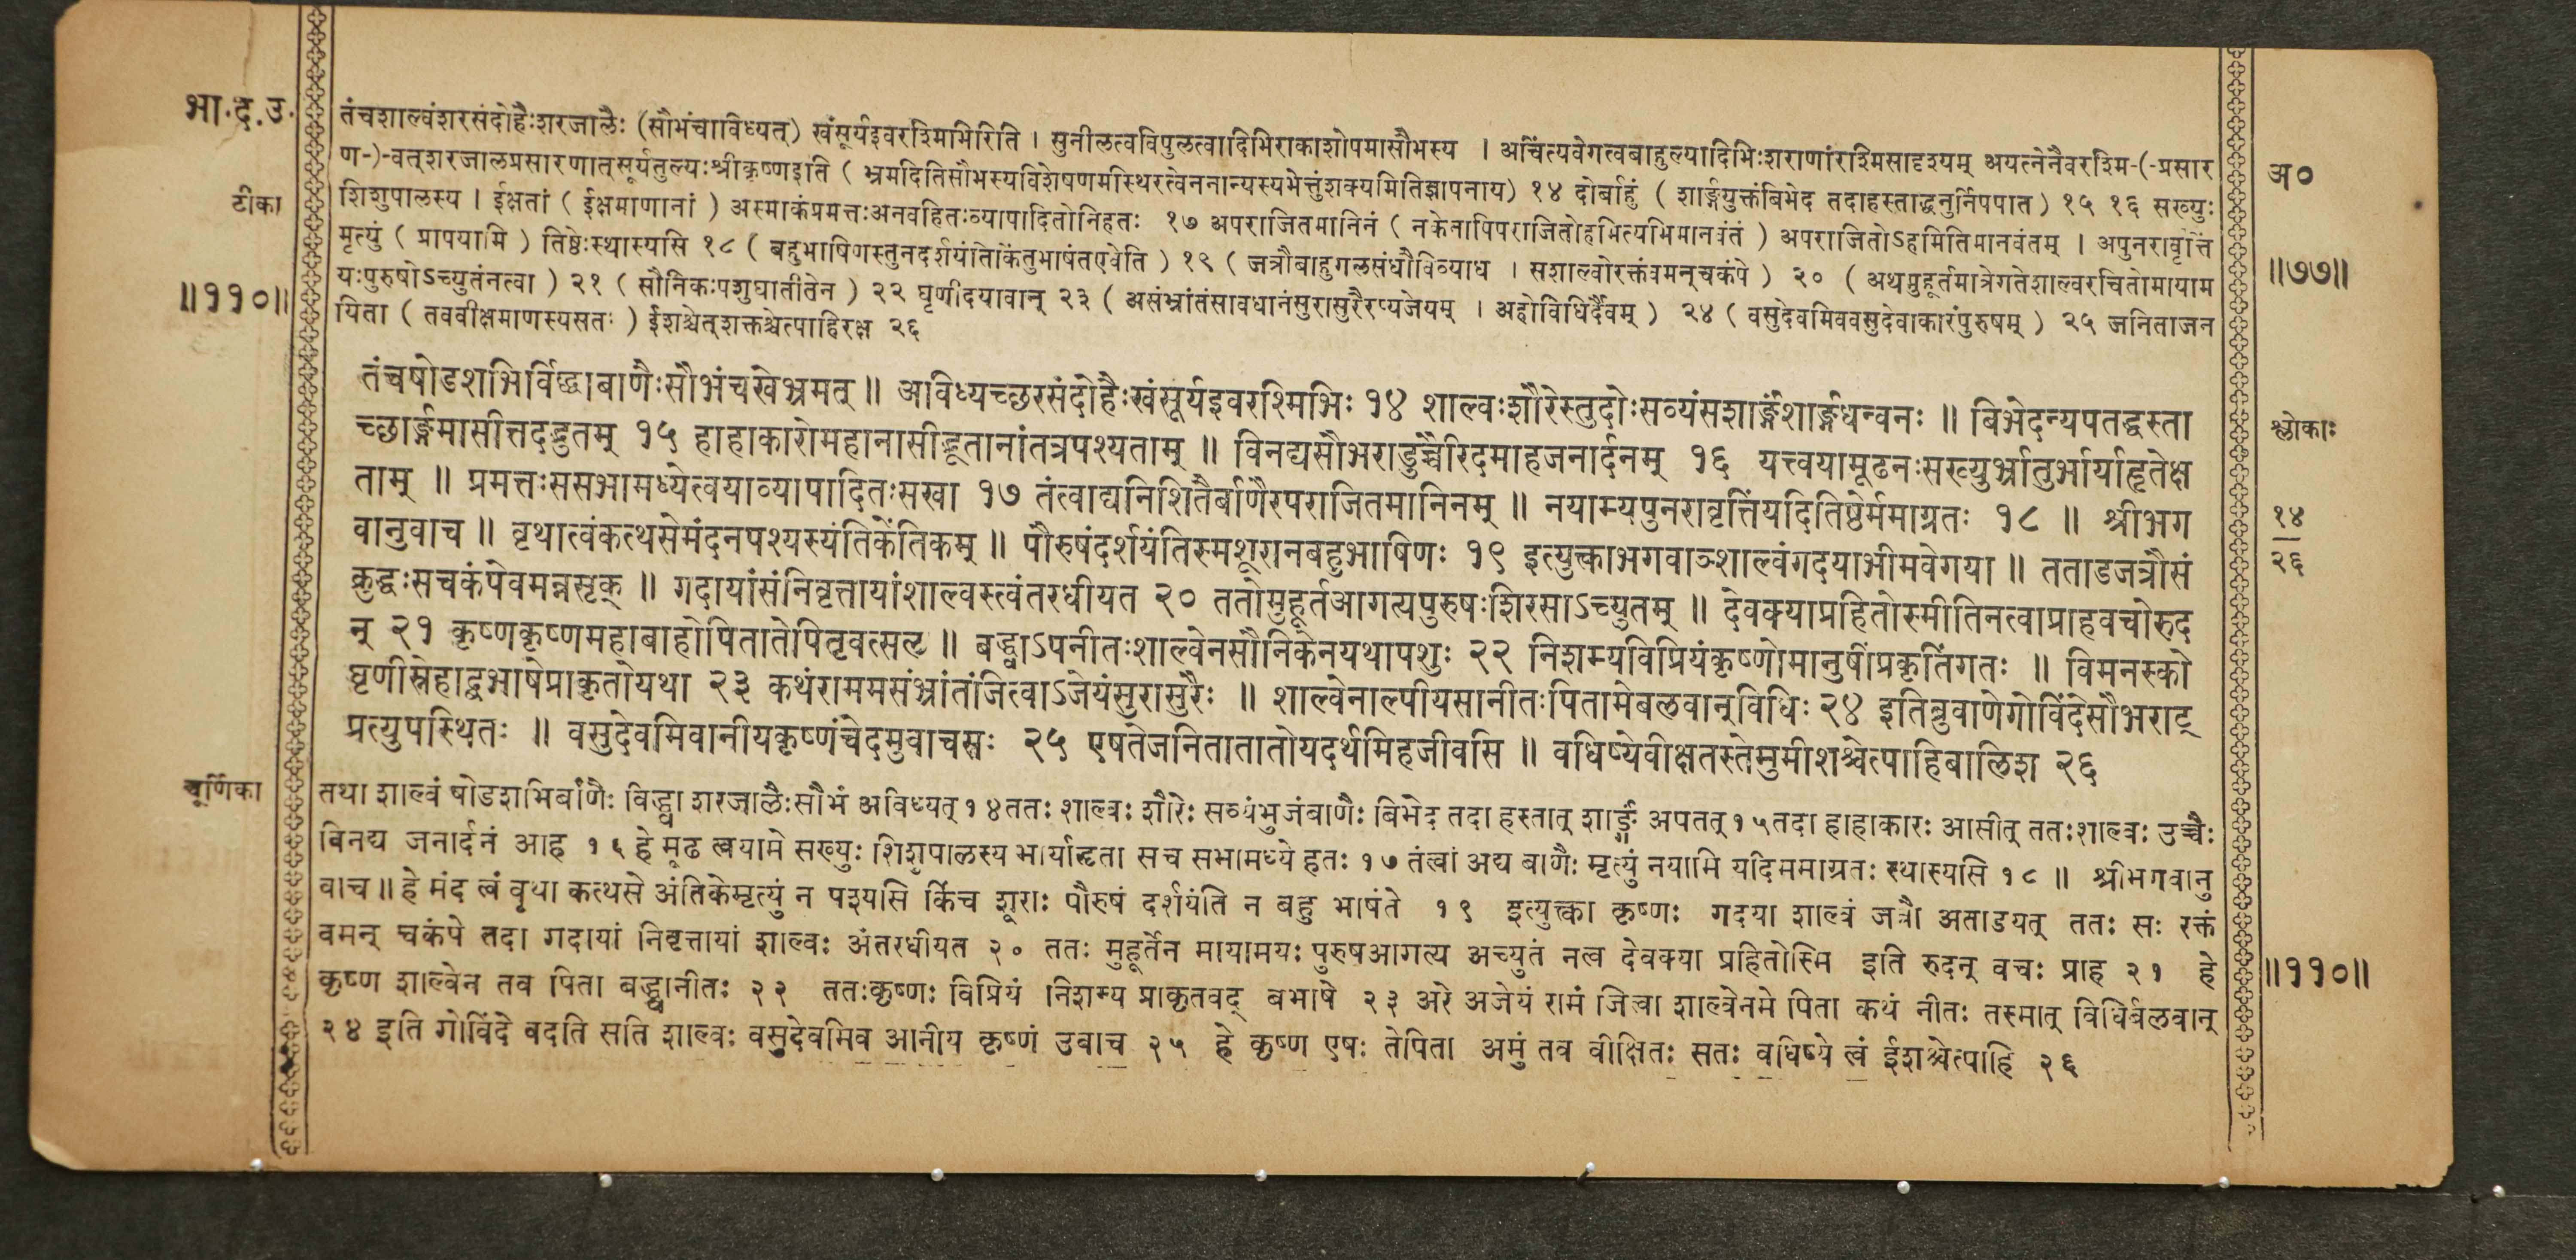 भा.द.उ.
तंचशाल्वंशरसंदोहैःशरजालैः (सौभंचाविध्यत्) खंसूर्यइवरश्मिभिरिति । सुनीलत्वविपुलत्वादिभिराकाशोपमासौभस्य । अचिंत्यवेगत्वबाहुल्यादिभिःशराणांरश्मिसादृश्यम् अयत्नेनैवरश्मि-(-प्रसार
ण-)-वत्शरजालप्रसारणात्सूर्यतुल्यःश्रीकृष्णइति ( भ्रमदितिसौभस्यविशेषणमस्थिरत्वेननान्यस्यभेत्तुंशक्यमितिज्ञापनाय) १४ दोर्बाहुं ( शार्ङ्गयुक्तंबिभेद तदाहस्ताद्धनुर्निपपात ) १५ १६ सख्युः
अ०
टीका
शिशुपालस्य । ईक्षतां ( ईक्षमाणानां ) अस्माकंप्रमत्तःअनवहितःव्यापादितोनिहतः १७ अपराजितमानिनं ( नकेनापिपराजितोहमित्यभिमानवंतं ) अपराजितोऽहमितिमानवंतम् । अपुनरावृत्तिं
मृत्युं ( प्रापयामि ) तिष्ठेःस्थास्यसि १८ ( बहुभाषिणस्तुनदर्शयंतिकिंतुभाषंतएवेति ) १९ ( जत्रौबाहुगलसंधौविव्याध । सशाल्वोरक्तंवमन्चकंपे ) २० ( अथमुहूर्तमात्रेगतेशाल्वरचितोमायाम
॥७७॥
॥११०॥
यःपुरुषोऽच्युतंनत्वा ) २१ ( सौनिकःपशुघातीतेन ) २२ घृणीदयावान् २३ ( असंभ्रांतंसावधानंसुरासुरैरप्यजेयम् । अहोविधिर्दैवम् ) २४ ( वसुदेवमिववसुदेवाकारंपुरुषम् ) २५ जनिताजन
यिता ( तववीक्षमाणस्यसतः ) ईशश्चेत्शक्तश्चेत्पाहिरक्ष २६
तंचषोडशभिर्विद्ध्वाबाणैःसौभंचखेभ्रमत् ॥ अविध्यच्छरसंदोहैःखंसूर्यइवरश्मिभिः १४ शाल्वःशौरेस्तुदोःसव्यंसशार्ङ्गंशार्ङ्गधन्वनः ॥ बिभेदन्यपतद्धस्ता
च्छार्ङ्गमासीत्तदद्भुतम् १५ हाहाकारोमहानासीद्भूतानांतत्रपश्यताम् ॥ विनद्यसौभराडुच्चैरिदमाहजनार्दनम् १६ यत्त्वयामूढनःसख्युर्भ्रातुर्भार्याहृतेक्ष
श्लोकाः
ताम् ॥ प्रमत्तःससभामध्येत्वयाव्यापादितःसखा १७ तंत्वाद्यनिशितैर्बाणैरपराजितमानिनम् ॥ नयाम्यपुनरावृत्तिंयदितिष्ठेर्ममाग्रतः १८ ॥ श्रीभग
१४
वानुवाच ॥ वृथात्वंकत्थसेमंदनपश्यस्यंतिकेंतिकम् ॥ पौरुषंदर्शयंतिस्मशूरानबहुभाषिणः १९ इत्युक्त्वाभगवाञ्शाल्वंगदयाभीमवेगया ॥ तताडजत्रौसं
२६
क्रुद्धःसचकंपेवमन्नसृक् ॥ गदायांसंनिवृत्तायांशाल्वस्त्वंतरधीयत २० ततोमुहूर्तआगत्यपुरुषःशिरसाऽच्युतम् ॥ देवक्याप्रहितोस्मीतिनत्वाप्राहवचोरुद
न् २१ कृष्णकृष्णमहाबाहोपितातेपितृवत्सल ॥ बद्ध्वाऽपनीतःशाल्वेनसौनिकेनयथापशुः २२ निशम्यविप्रियंकृष्णोमानुषींप्रकृतिंगतः ॥ विमनस्को
घृणीस्नेहाद्बभाषेप्राकृतोयथा २३ कथंराममसंभ्रांतंजित्वाऽजेयंसुरासुरैः ॥ शाल्वेनाल्पीयसानीतःपितामेबलवान्विधिः २४ इतिब्रुवाणेगोविंदेसौभराट्
प्रत्युपस्थितः ॥ वसुदेवमिवानीयकृष्णंचेदमुवाचसः २५ एषतेजनितातातोयदर्थमिहजीवसि ॥ वधिष्येवीक्षतस्तेमुमीशश्चेत्पाहिबालिश २६
चूर्णिका
तथा शाल्वं षोडशभिर्बाणैः विद्ध्वा शरजालैःसौभं अविध्यत् १४ततः शाल्वः शौरेः सव्यंभुजंबाणैः बिभेद तदा हस्तात् शार्ङ्गं अपतत् १५तदा हाहाकारः आसीत् ततःशाल्वः उच्चैः
विनद्य जनार्दनं आह १६ हे मूढ त्वयामे सख्युः शिशुपालस्य भार्याहृता सच सभामध्ये हतः १७ तंत्वां अद्य बाणैः मृत्युं नयामि यदिममाग्रतः स्थास्यसि १८ ॥ श्रीभगवानु
वाच ॥ हे मंद त्वं वृथा कत्थसे अंतिकेमृत्युं न पश्यसि किंच शूराः पौरुषं दर्शयंति न बहु भाषंते १९ इत्युक्त्वा कृष्णः गदया शाल्वं जत्रौ अताडयत् ततः सः रक्तं
वमन् चकंपे तदा गदायां निवृत्तायां शाल्वः अंतरधीयत २० ततः मुहूर्तेन मायामयः पुरुषआगत्य अच्युतं नत्व देवक्या प्रहितोस्मि इति रुदन् वचः प्राह २१ हे
॥११०॥
कृष्ण शाल्वेन तव पिता बद्ध्वानीतः २२ ततःकृष्णः विप्रियं निशम्य प्राकृतवद् बभाषे २३ अरे अजेयं रामं जित्वा शाल्वेनमे पिता कथं नीतः तस्मात् विधिर्बलवान्
२४ इति गोविंदे वदति सति शाल्वः वसुदेवमिव आनीय कृष्णं उवाच २५ हे कृष्ण एषः तेपिता अमुं तव वीक्षितः सतः वधिष्ये त्वं ईशश्चेत्पाहि २६